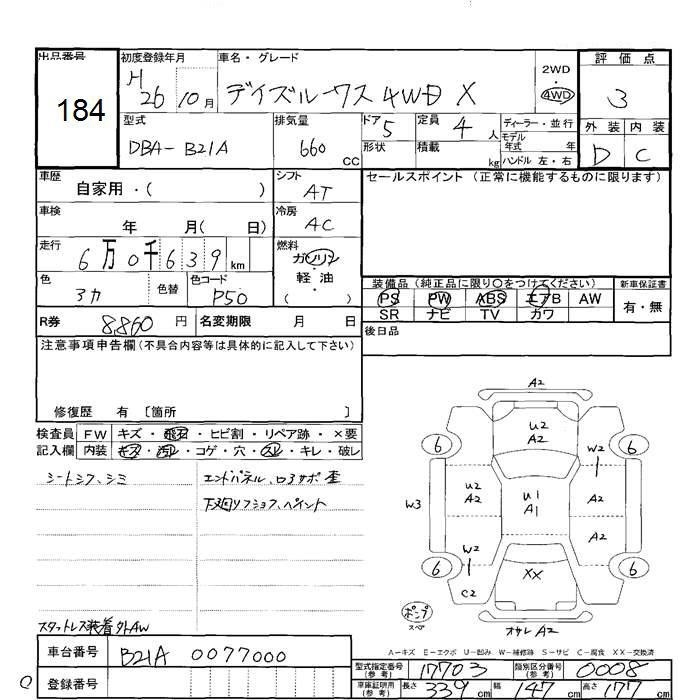 出品番号
184
初度登録年月
H26 10月
車名・グレード
デイズルークス 4WD X
2WD
・
4WD
評価点
3
外装 内装
D C
型式
DBA-B21A
排気量
660 cc
ドア 5
形状
定員 4 人
積載 kg
ディーラー・並行
モデル年式 年
ハンドル 左・右
車歴
自家用・( )
シフト
AT
セールスポイント (正常に機能するものに限ります)
車検
年 月( 日)
冷房
AC
走行
6万0千639 km
燃料
ガソリン
軽油
( )
色
アカ
色替
色コード
P50
装備品 (純正品に限り○をつけてください)
PS PW ABS エアB AW
SR ナビ TV カワ
新車保証書
有・無
R券 8,860 円
名変期限 月 日
後日品
注意事項申告欄 (不具合内容等は具体的に記入して下さい)
修復歴 有 〔箇所 〕
検査員記入欄
FW キズ・飛石・ヒビ割・リペア跡・×要
内装 キズ・汚レ・コゲ・穴・スレ・キレ・破レ
シートシワ、シミ
エンドパネル、ロアサポ 歪
下廻りサフショク、ペイント
スタットレス装着 外AW
A2
U2
A2
6
6
W2
U2
A2
U1
A1
A2
W3
A2
W2
6
6
XX
C2
ポンプ
スペア
オサレ A2
A-キズ E-エクボ U-凹み W-補修跡 S-サビ C-腐食 XX-交換済
車台番号 B21A 0077000
登録番号
型式指定番号 (参考) 17703
類別区分番号 (参考) 0008
車庫証明用 (参考) 長さ 339 cm 幅 147 cm 高さ 177 cm